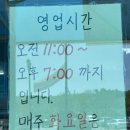 영업시간
오전 11:00 ~
오후 7:00 까지
입니다.
매주 화요일은